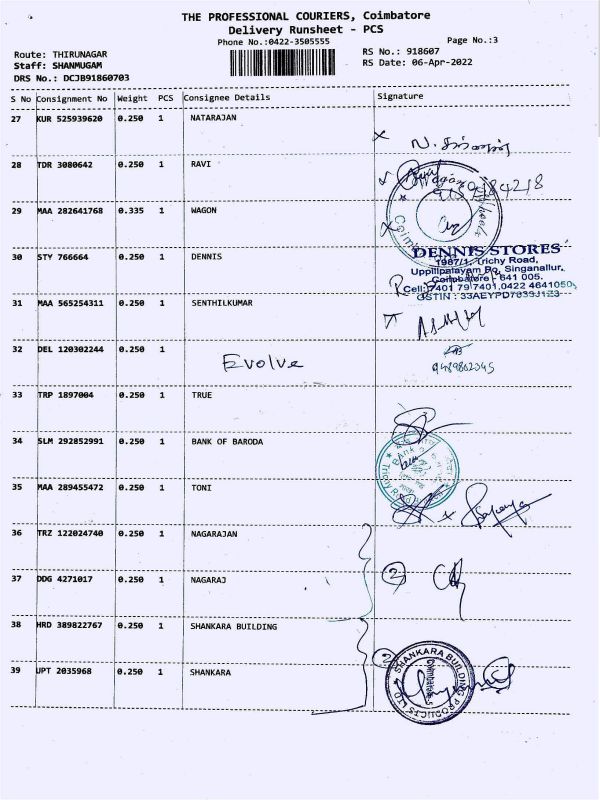 THE PROFESSIONAL COURIERS, Coimbatore
Delivery Runsheet - PCS
Phone No.:0422-3505555
Page No.:3
Route: THIRUNAGAR
RS No.: 918607
Staff: SHANMUGAM
RS Date: 06-Apr-2022
DRS No.: DCJB91860703
S No Consignment No Weight PCS Consignee Details Signature
27 KUR 525939620 0.250 1 NATARAJAN
28 TDR 3080642 0.250 1 RAVI
29 MAA 282641768 0.335 1 WAGON
30 STY 766664 0.250 1 DENNIS
DENNIS STORES
1987/1, Trichy Road,
Uppilipalayam Po, Singanallur,
Coimbatore - 641 005.
Cell: 7401 797401, 0422 4641050,
GSTIN : 33AEYPD7639J1Z3
31 MAA 565254311 0.250 1 SENTHILKUMAR
32 DEL 120302244 0.250 1 Evolve
9489862045
33 TRP 1897004 0.250 1 TRUE
34 SLM 292852991 0.250 1 BANK OF BARODA
35 MAA 289455472 0.250 1 TONI
36 TRZ 122024740 0.250 1 NAGARAJAN
37 DDG 4271017 0.250 1 NAGARAJ
2
38 HRD 389822767 0.250 1 SHANKARA BUILDING
2
39 UPT 2035968 0.250 1 SHANKARA
SHANKARA BUILDING PRODUCTS LTD